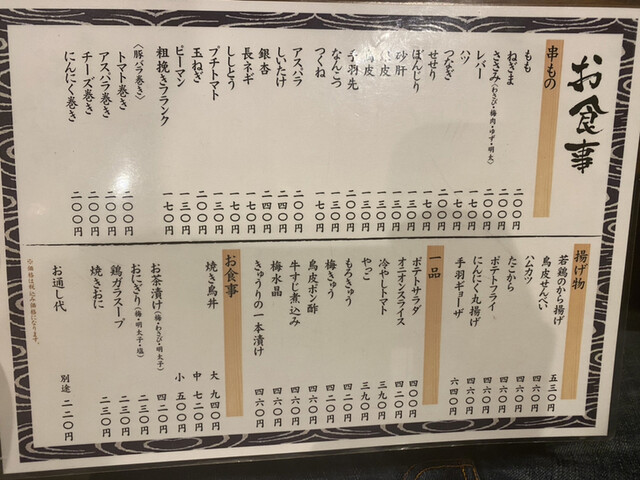 お食事
串もの
もも 二〇〇円
ねぎま 二〇〇円
ささみ(わさび・梅肉・ゆず・明太) 二〇〇円
レバー 一七〇円
ハツ 一七〇円
つなぎ 二〇〇円
せせり 一七〇円
ぼんじり
砂肝
手羽先
なんこつ
つくね
アスパラ 二〇〇円
しいたけ 二四〇円
銀杏 二四〇円
長ネギ 一七〇円
ししとう 一七〇円
プチトマト
玉ねぎ 二〇〇円
ピーマン 一三〇円
粗挽きフランク 一七〇円
〈豚バラ巻き〉
トマト巻き 二〇〇円
アスパラ巻き 二〇〇円
チーズ巻き 二〇〇円
にんにく巻き 二〇〇円
揚げ物
若鶏のから揚げ 五三〇円
鳥皮せんべい 四六〇円
ハムカツ
たこから
ポテトフライ
にんにく丸揚げ
手羽ギョーザ 六四〇円
一品
ポテトサラダ 四〇〇円
オニオンスライス 四二〇円
冷やしトマト 三九〇円
やっこ 三九〇円
もろきゅう 四二〇円
梅きゅう 四二〇円
鳥皮ポン酢 四六〇円
牛すじ煮込み
梅水晶 四六〇円
きゅうりの一本漬け 四六〇円
お食事
焼き鳥丼 大 九四〇円
中 七二〇円
小 五〇〇円
お茶漬け(梅・わさび・明太子) 四二〇円
おにぎり(梅・明太子・塩) 二三〇円
鶏ガラスープ 二三〇円
焼きおに 二三〇円
お通し代 別途 二二〇円
※価格は税込み価格になります。